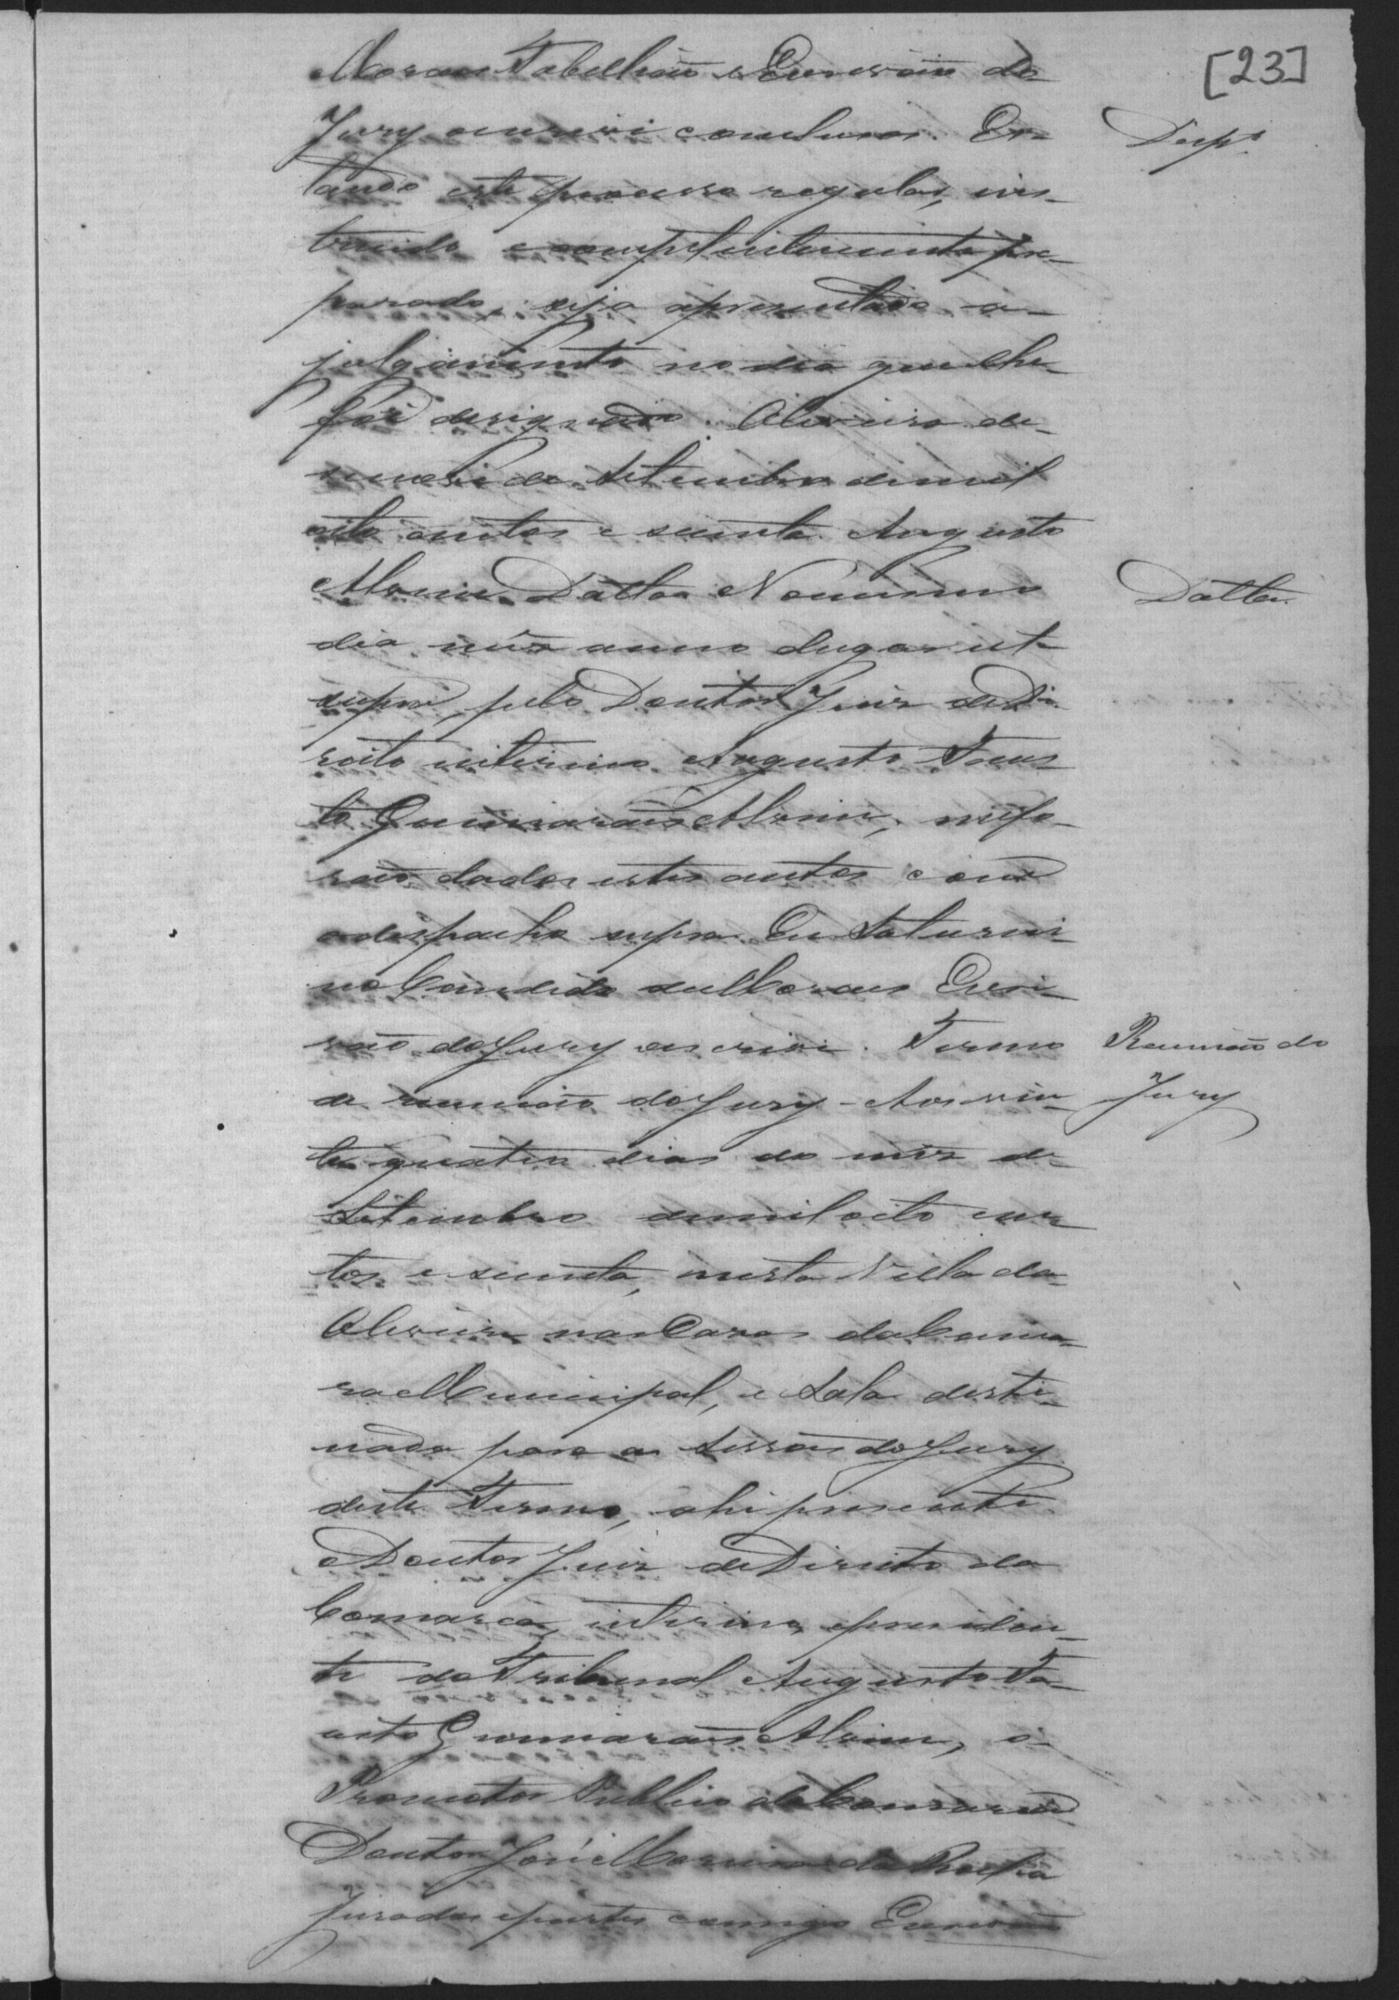 [23]
Moraes Tabellião e Escrivão do
Jury o escrevi conclusos. Es-
Desp.º
tando este processo regular, ins-
truido e competentemente pre-
parado, seja apresentado a
julgamento no dia que lhe
for designado. Oliveira de-
zenove de Setembro de mil
oito centos e secenta. Augusto
Alvim. Datta Nomesmo
Datta.
dia, mez anno e lugar ut
supra, pelo Doutor Juiz de Di-
reito interino Augusto Faus-
to Guimarães Alvim, me fo-
rão dados estes autos com
o despacho supra. Eu Saturni-
no Candido de Moraes Escri-
vão do Jury o escrevi. Termo
Reunião do
de reunião do Jury - Aos vin-
Jury
te quatro dias do mez de
Setembro de mil oito cen-
tos e secenta, nesta Villa da
Oliveira nas Casas da Cama-
ra Municipal, e Sala desti-
nada para as Sessões do Jury
deste Termo, ahi presente
o Doutor Juiz de Direito da
Comarca, interino, presiden-
te do Tribunal Augusto Fa-
usto Guimarães Alvim, o
Promotor Publico da Comarca
Doutor José Marianno da Rocha
Jurados e partes comigo Escrivão